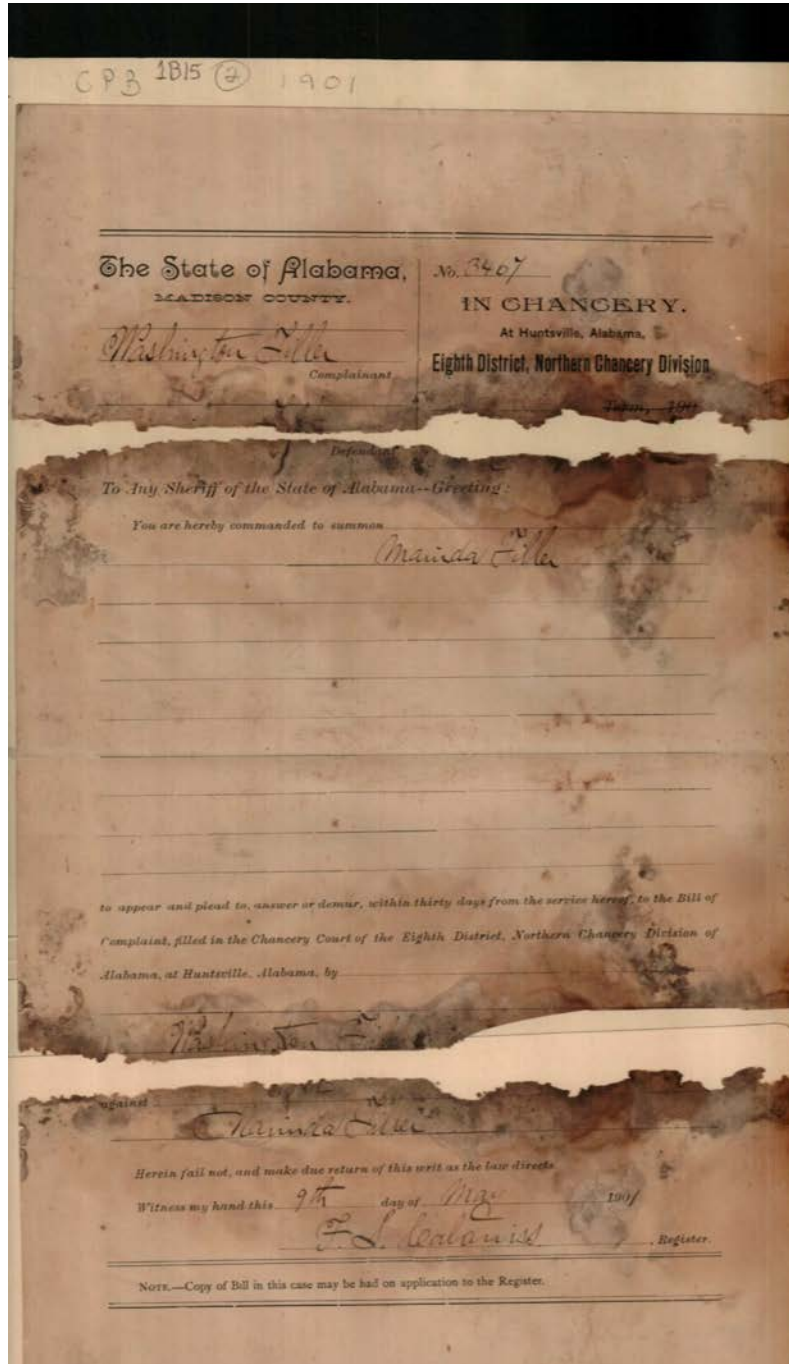 CPB 1B15 2 1901
The State of Alabama,
MADISON COUNTY.
Washington Filler
Complainant
No. 3467
IN CHANCERY.
At Huntsville, Alabama,
Eighth District, Northern Chancery Division
Term, 190
Defendant
To Any Sheriff of the State of Alabama--Greeting:
You are hereby commanded to summon
Marinda Filler
to appear and plead to, answer or demur, within thirty days from the service hereof, to the Bill of
Complaint, filled in the Chancery Court of the Eighth District, Northern Chancery Division of
Alabama, at Huntsville, Alabama, by
Washington
against
Marinda Filler
Herein fail not, and make due return of this writ as the law directs
Witness my hand this 9th day of May 1901
F. L. , Register.
NOTE.—Copy of Bill in this case may be had on application to the Register.